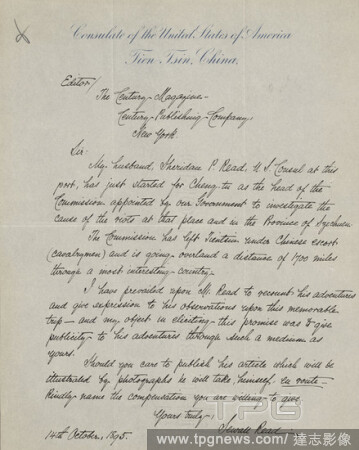 Consulate of the United States of America
Tien Tsin, China.
Editor/
The Century Magazine
Century Publishing Company
New York.
Sir:
My husband, Sheridan P. Read, U. S. Consul at this
post, has just started for Cheng-tu as the head of the
Commission appointed by our Government to investigate the
cause of the riots at that place and in the Province of Szechuen.
The Commission has left Tientsin under Chinese escort
(cavalrymen) and is going overland a distance of 1700 miles
through a most interesting country.
I have prevailed upon Mr. Read to recount his adventures
and give expression to his observations upon this memorable
trip — and my object in eliciting this promise was to give
publicity to his adventures through such a medium as
yours.
Should you care to publish his article which will be
illustrated by photographs he will take, himself, en route —
Kindly name the compensation you are willing to give.
Yours truly,
Read
14th October, 1895.
TPG
www.tpgnews.com/達志影像